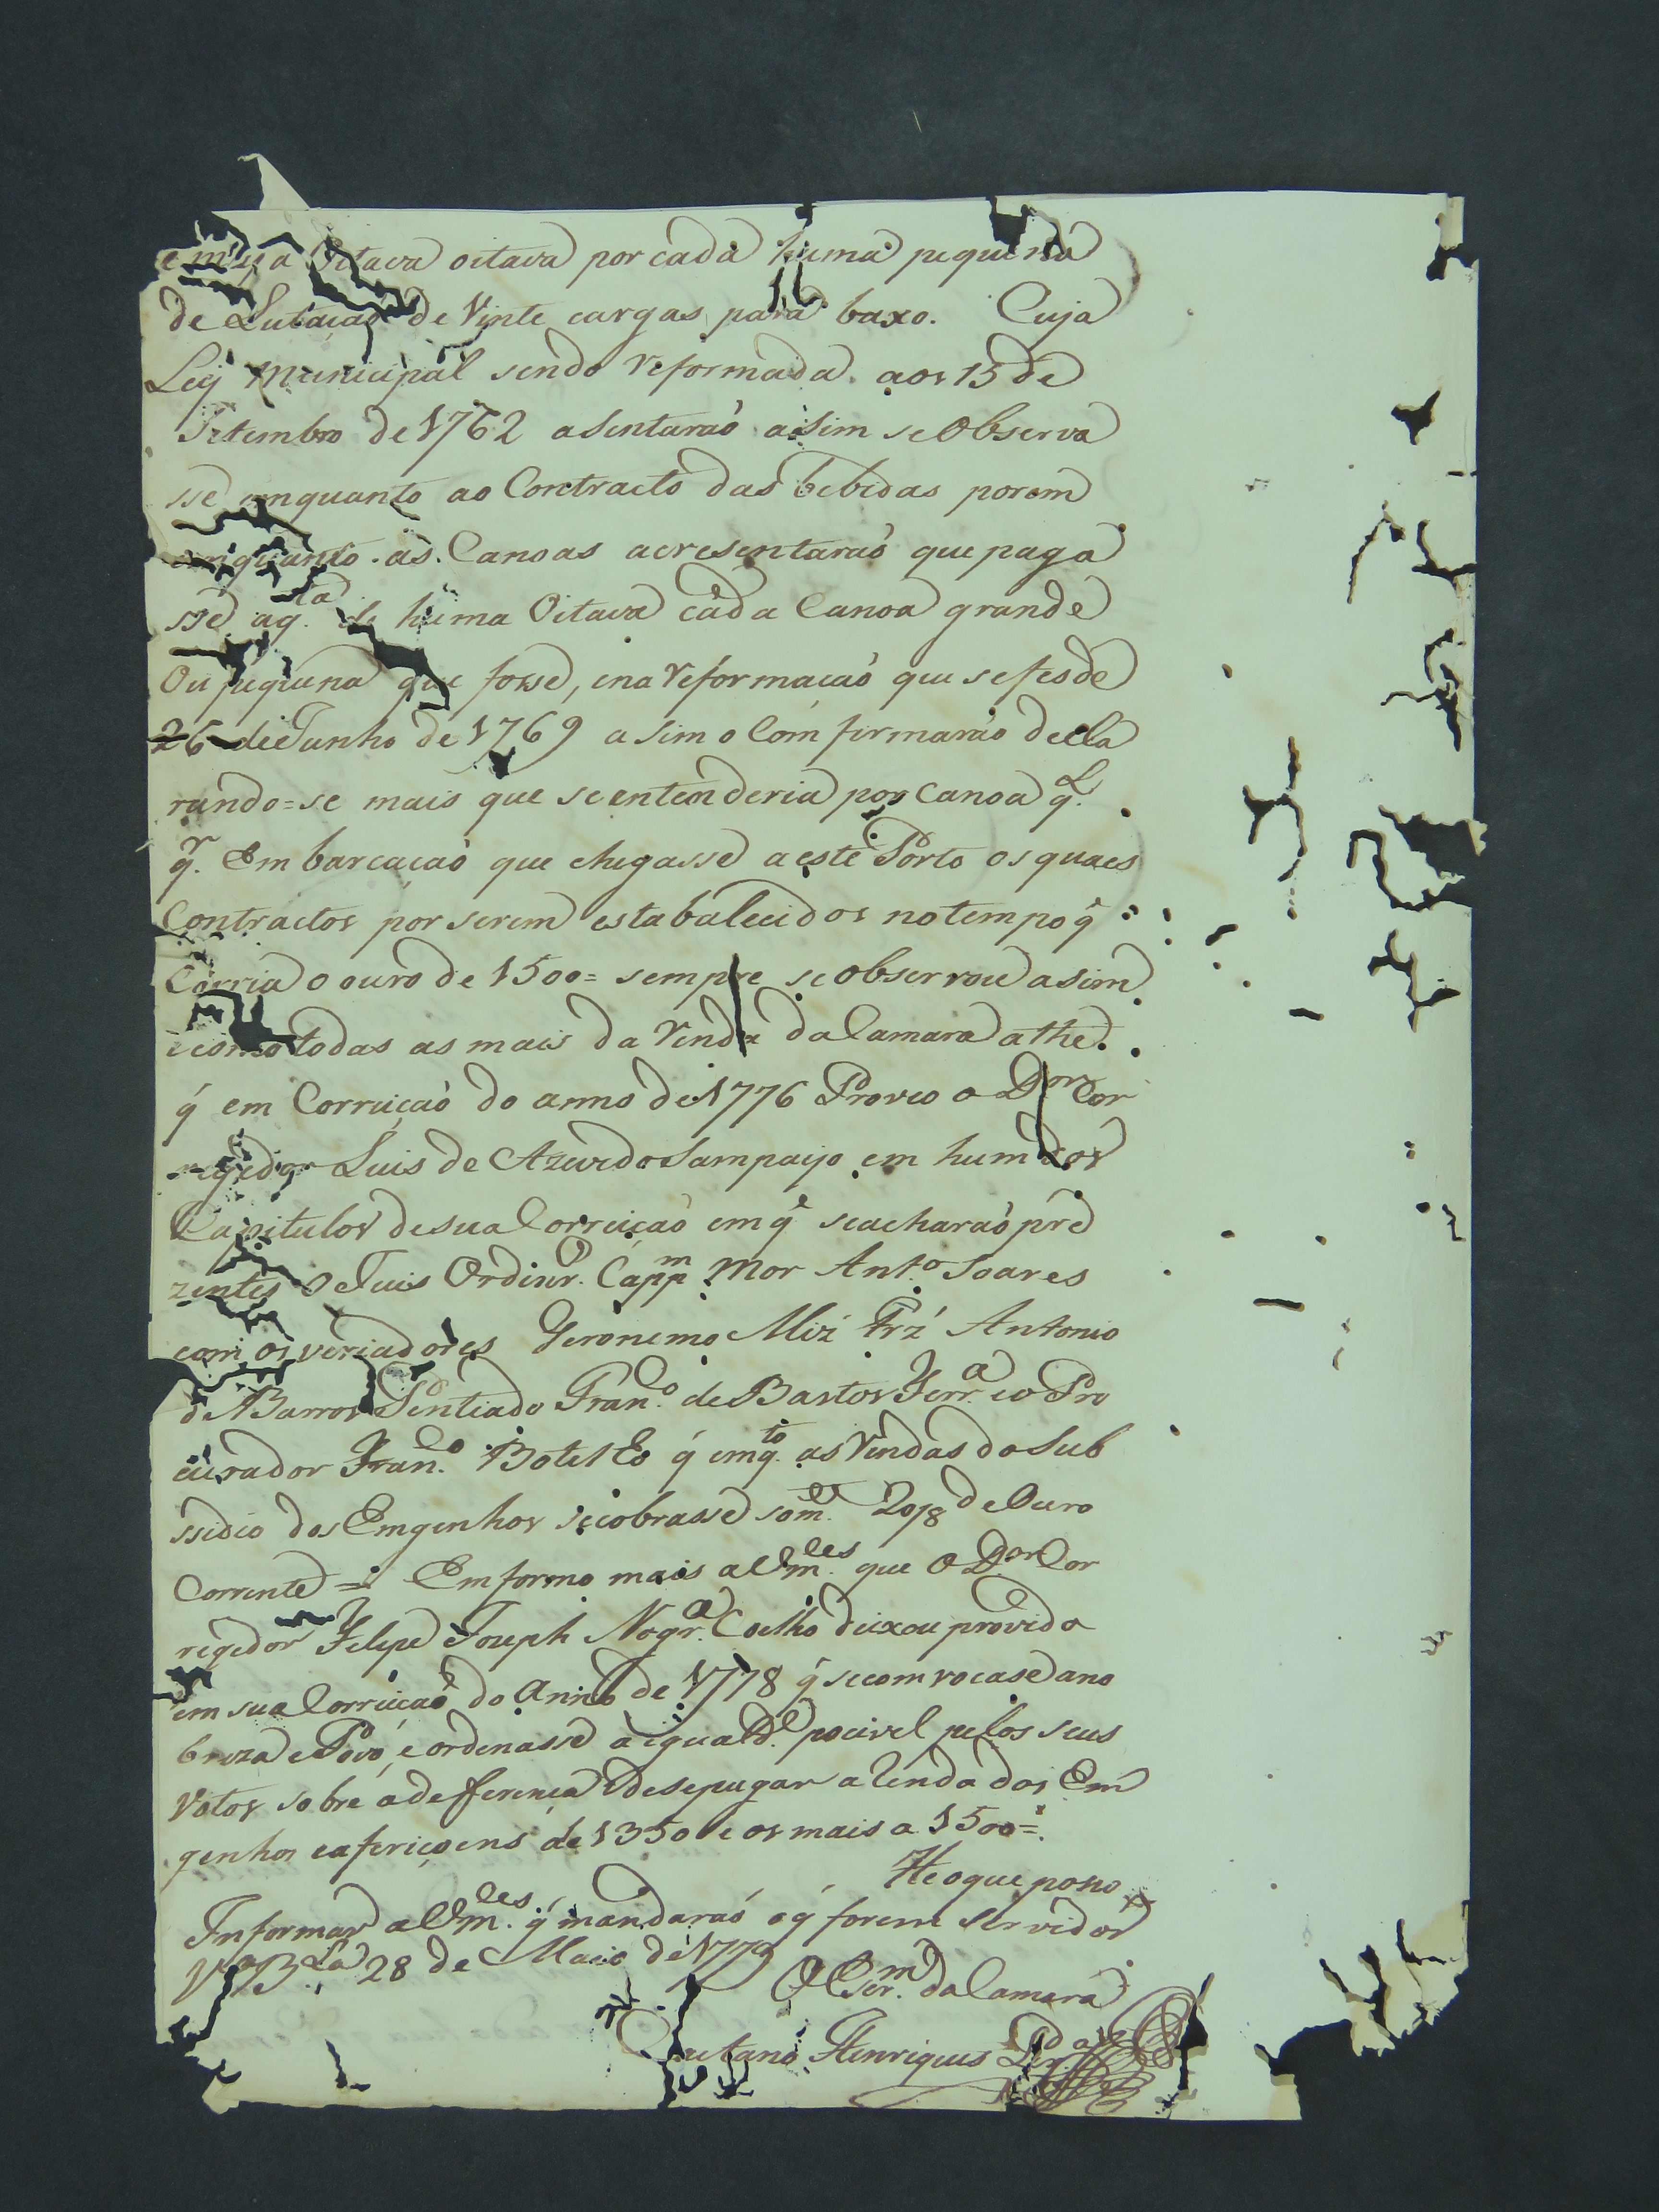 e meya Oitava oitava por cada huma piquena
de Lutacao de Vinte cargas para baxo. Cuja
Ley Municipal sendo reformada aos 15 de
Setembro de 1762 asentaraõ asim se Observa
sse emquanto ao Contracto das bebidas porem
emquanto as Canoas acresentaraõ que paga
sse aq.ta de huma Oitava cada Canoa grande
Ou piquena que fosse, ena reformacaõ que se fes de
26 de Junho de 1769 asim o Comfirmaraõ decla
rando=se mais que se entenderia por Canoa q.l
q.r Embarcacaõ que chegasse a este Porto os quaes
Contractos por serem estabalecidos no tempo q̃
Corria o ouro de 1500= sempre se observou asim
e como todas as mais da Venda da Camara athe
q̃ em Correiçaõ do anno de 1776 Proveo o D.or Cor
regedor Luis de Azevedo Sampayo em hum dos
Capitulos de sua Correiçaõ em q̃ se acharaõ pre
zentes o Juis Ordinr.o Capp.m Mor Ant.o Soares
com os veriadores Jeronemo Miz Frz Antonio
de Barros Penteado Fran.co de Bastos Ferr.a e o Pro
curador Fran.co Botelho q̃ emq.to as Vendas do Sub
ssidio dos Emgenhos se cobrasse som.e 20/8 de Ouro
Corrente = Emformo mais a Vm.les que o D.or Cor
regedor Felipe Joseph Nogr.a Coelho deixou provido
em sua Correiçaõ do Anno de 1778 q̃ se comvocase ano
breza e Povo, e ordenasse a iguald.e pocivel pelos seus
Votos sobre a defferenca de se pagar a Venda dos Em
genhos e afericoens de 1350 e os mais a 1500=.
He o que posso
Informar a Vm.les q̃ mandaraõ o q̃ forem servidos
V.a B.la 28 de Maio de 1779
O Escr.m da Camara
Caetano Henriques